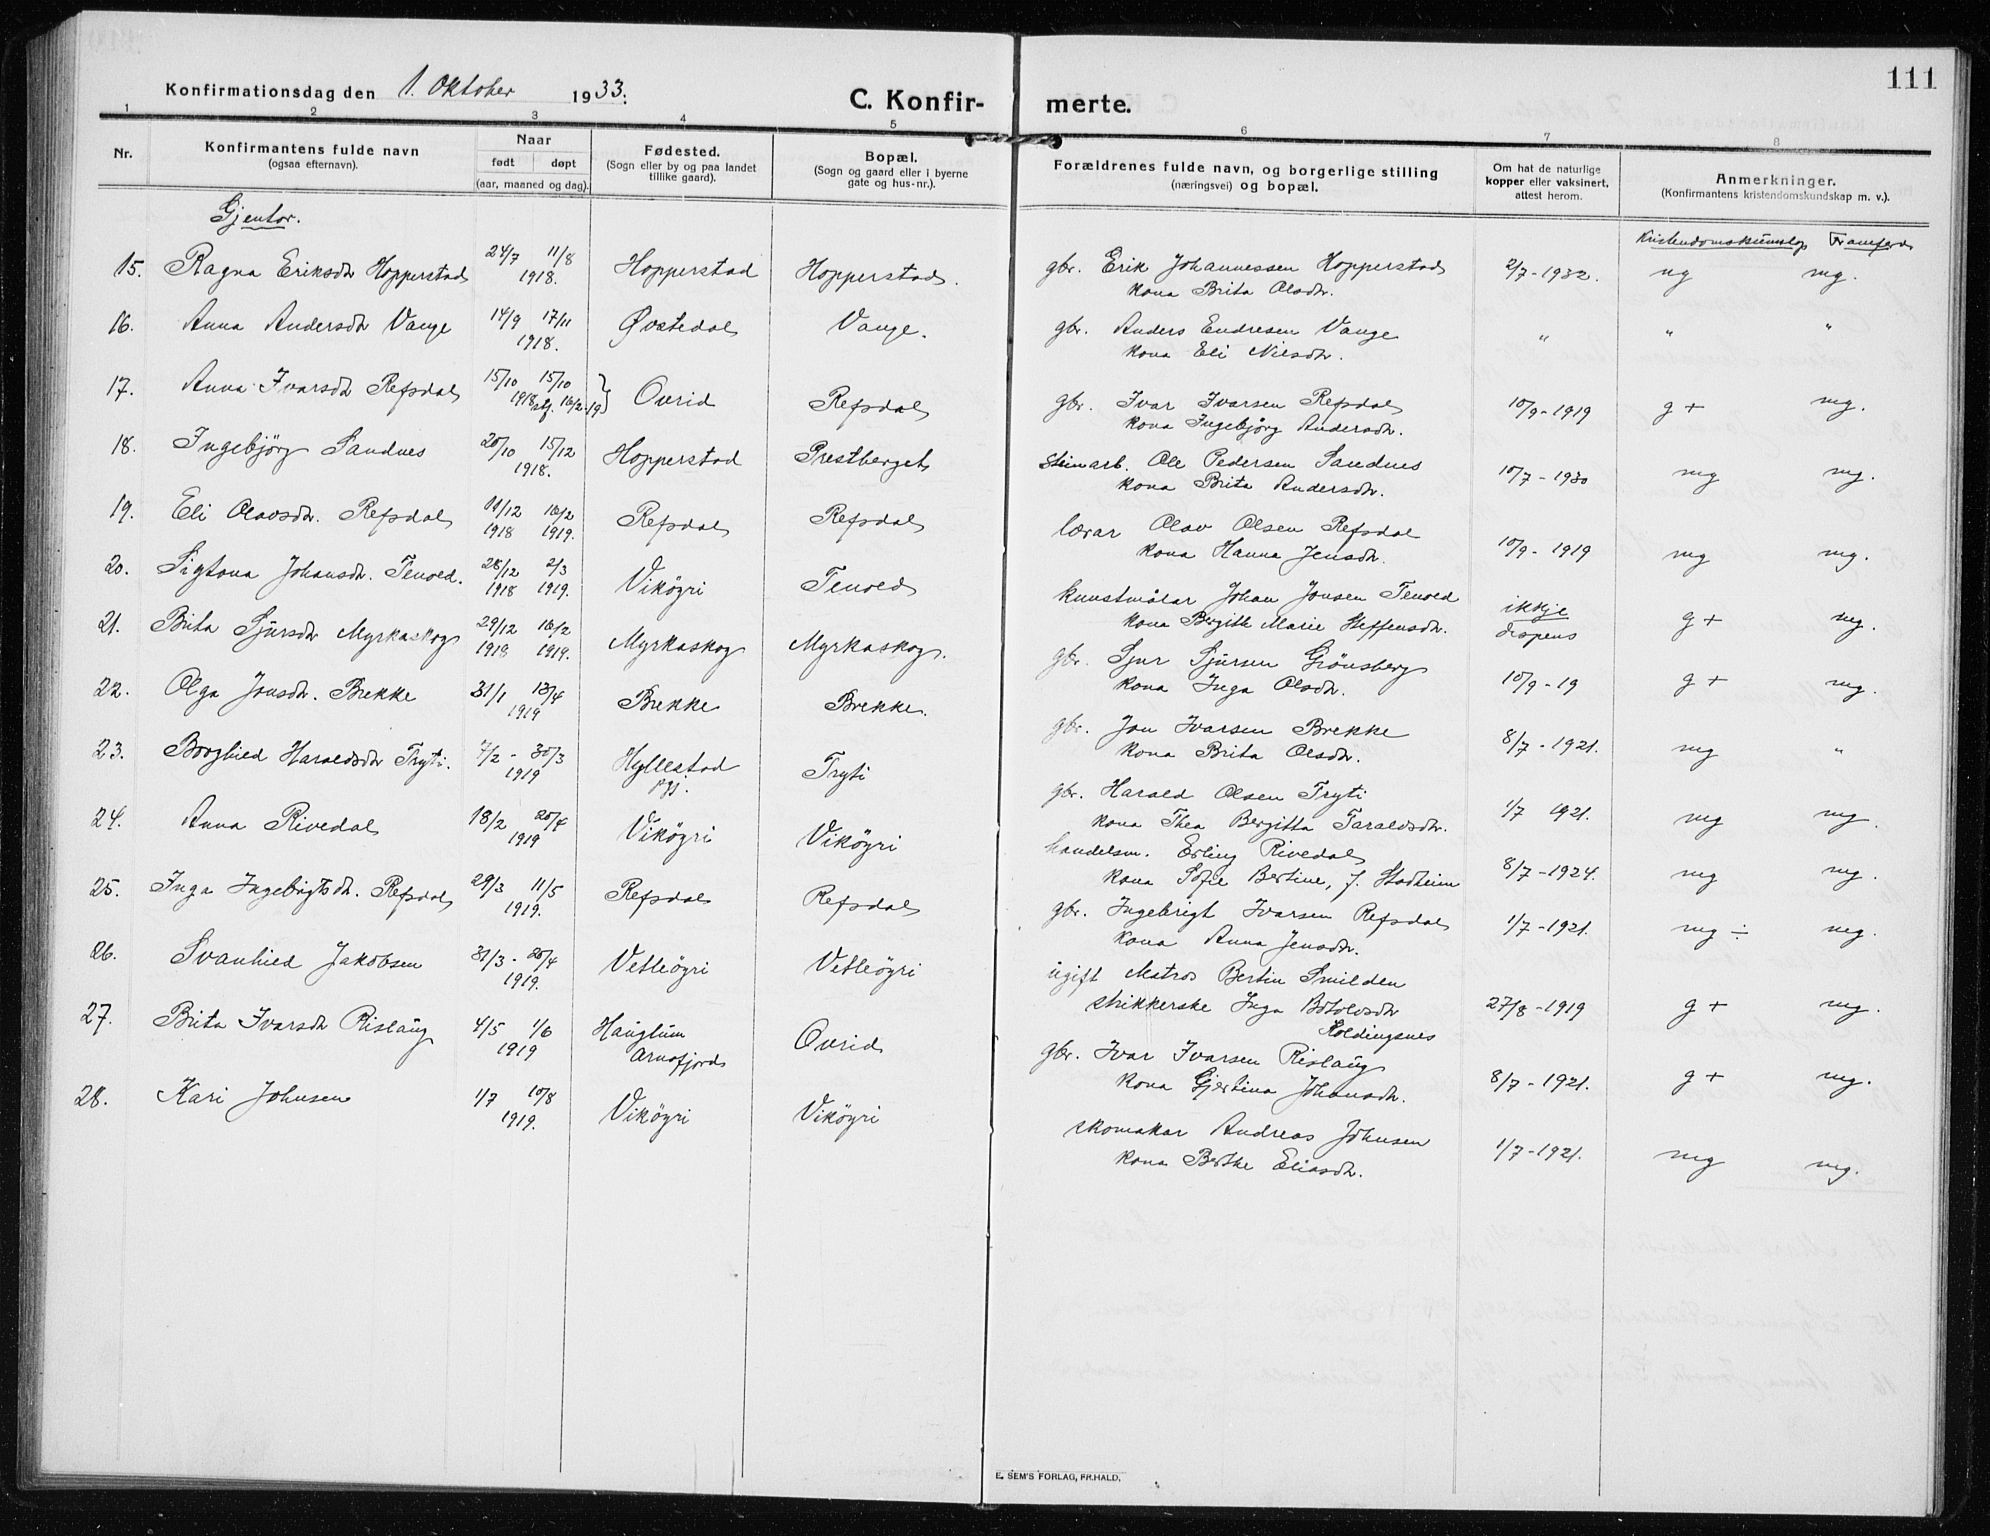 111
Konfirmationsdag den 1. Oktober 1933.
C. Konfir- merte.
1 2 3 4 5 6 7 8
Nr.
Konfirmantens fulde navn
(ogsaa efternavn).
Naar
født døpt
(aar, maaned og dag).
Fødested.
(Sogn eller by og paa landet
tillike gaard).
Bopæl.
(Sogn og gaard eller i byerne
gate og hus-nr.).
Forældrenes fulde navn, og borgerlige stilling
(næringsvei) og bopæl.
Om hat de naturlige
kopper eller vaksinert,
attest herom.
Anmerkninger.
(Konfirmantens kristendomskundskap m. v.).
Gjentor.
Kristendomskunnskp Framferd
15. Ragna Eriksdtr Hopperstad 24/7 11/8 Hopperstad Hopperstad. gbr. Erik Johannessen Hopperstad 2/7-1932. mg mg.
1918. kona Brita Olsdtr.
16. Anna Andersdtr Vange 14/9 17/11 Øvstedal Vange. gbr. Anders Endresen Vange " " "
1918. kona Eli Nilsdtr.
17. Anna Ivarsdtr Refsdal 15/10 15/10 Ovrid Refsdal gbr. Ivar Ivarsen Refsdal 10/9-1919 g+ mg.
1918 stf. 16/2-19 kona Ingebjörg Andersdtr.
18. Ingebjörg Sandnes 20/10 15/12 Hopperstad Prestberget steinarb. Ole Pedersen Sandnes 10/7-1930 mg mg.
1918. kona Brita Andersdtr.
19. Eli Olavsdtr. Refsdal 11/12 16/2 Refsdal Refsdal lærar Olav Olsen Refsdal 10/9-1919 mg mg.
1918 1919. kona Hanna Jensdtr.
20. Sigtona Johansdtr. Tenold. 28/12 2/3 Vikögri Tenold kunstmålar Johan Jonsen Tenold ikkje g+ mg.
1918 1919. kona Bergith Marie Steffensdtr. dispens
21. Brita Sjursdtr Myrkaskog 29/12 16/2 Myrkaskog Myrkaskog. gbr. Sjur Sjursen Grönsberg 10/9-19 g+ mg.
1918 1919. kona Inga Olsdtr.
22. Olga Jonsdtr. Brekke 31/1 13/4 Brekke Brekke. gbr. Jon Ivarsen Brekke 8/7-1921. mg "
1919 kona Brita Olsdtr.
23. Borghild Haraldsdtr Tryti. 7/2 - 30/3 Hyllestad Tryti gbr. Harald Olsen Tryti 1/7 1921. mg mg.
1919 pgj. kona Thea Bergitta Taraldsdtr.
24. Anna Rivedal 18/2 20/4 Vikögri Vikögri handelsm. Erling Rivedal 8/7-1924. mg mg.
1919 kona Sofie Bertine, f. Stadheim
25. Inga Ingebrigtsdtr. Refsdal 29/3 11/5 Refsdal Refsdal gbr. Ingebrigt Ivarsen Refsdal 1/7-1921. mg ÷ mg.
1919. kona Anna Jensdtr.
26. Svanhild Jakobsen 31/3 - 20/4 Vetleögri Vetleögri ugift Matros Bertin Smilden
1919. strikkerske Inga Botolvsdtr 27/8-1919 g+ mg.
Holdingsnes
27. Brita Ivarsdtr Rislaug 4/5 1/6 Hauglum Ovrid gbr. Ivar Ivarsen Rislaug 8/7-1921. g+ mg.
1919 Arnafjord kona Gjertina Johansdtr.
28. Kari Johnsen 1/7 10/8 Vikögri Vikögri skomakar Andreas Johnsen 1/7-1921. mg mg.
1919. kona Berthe Eliasdtr.
E. SEM'S FORLAG, FR.HALD.